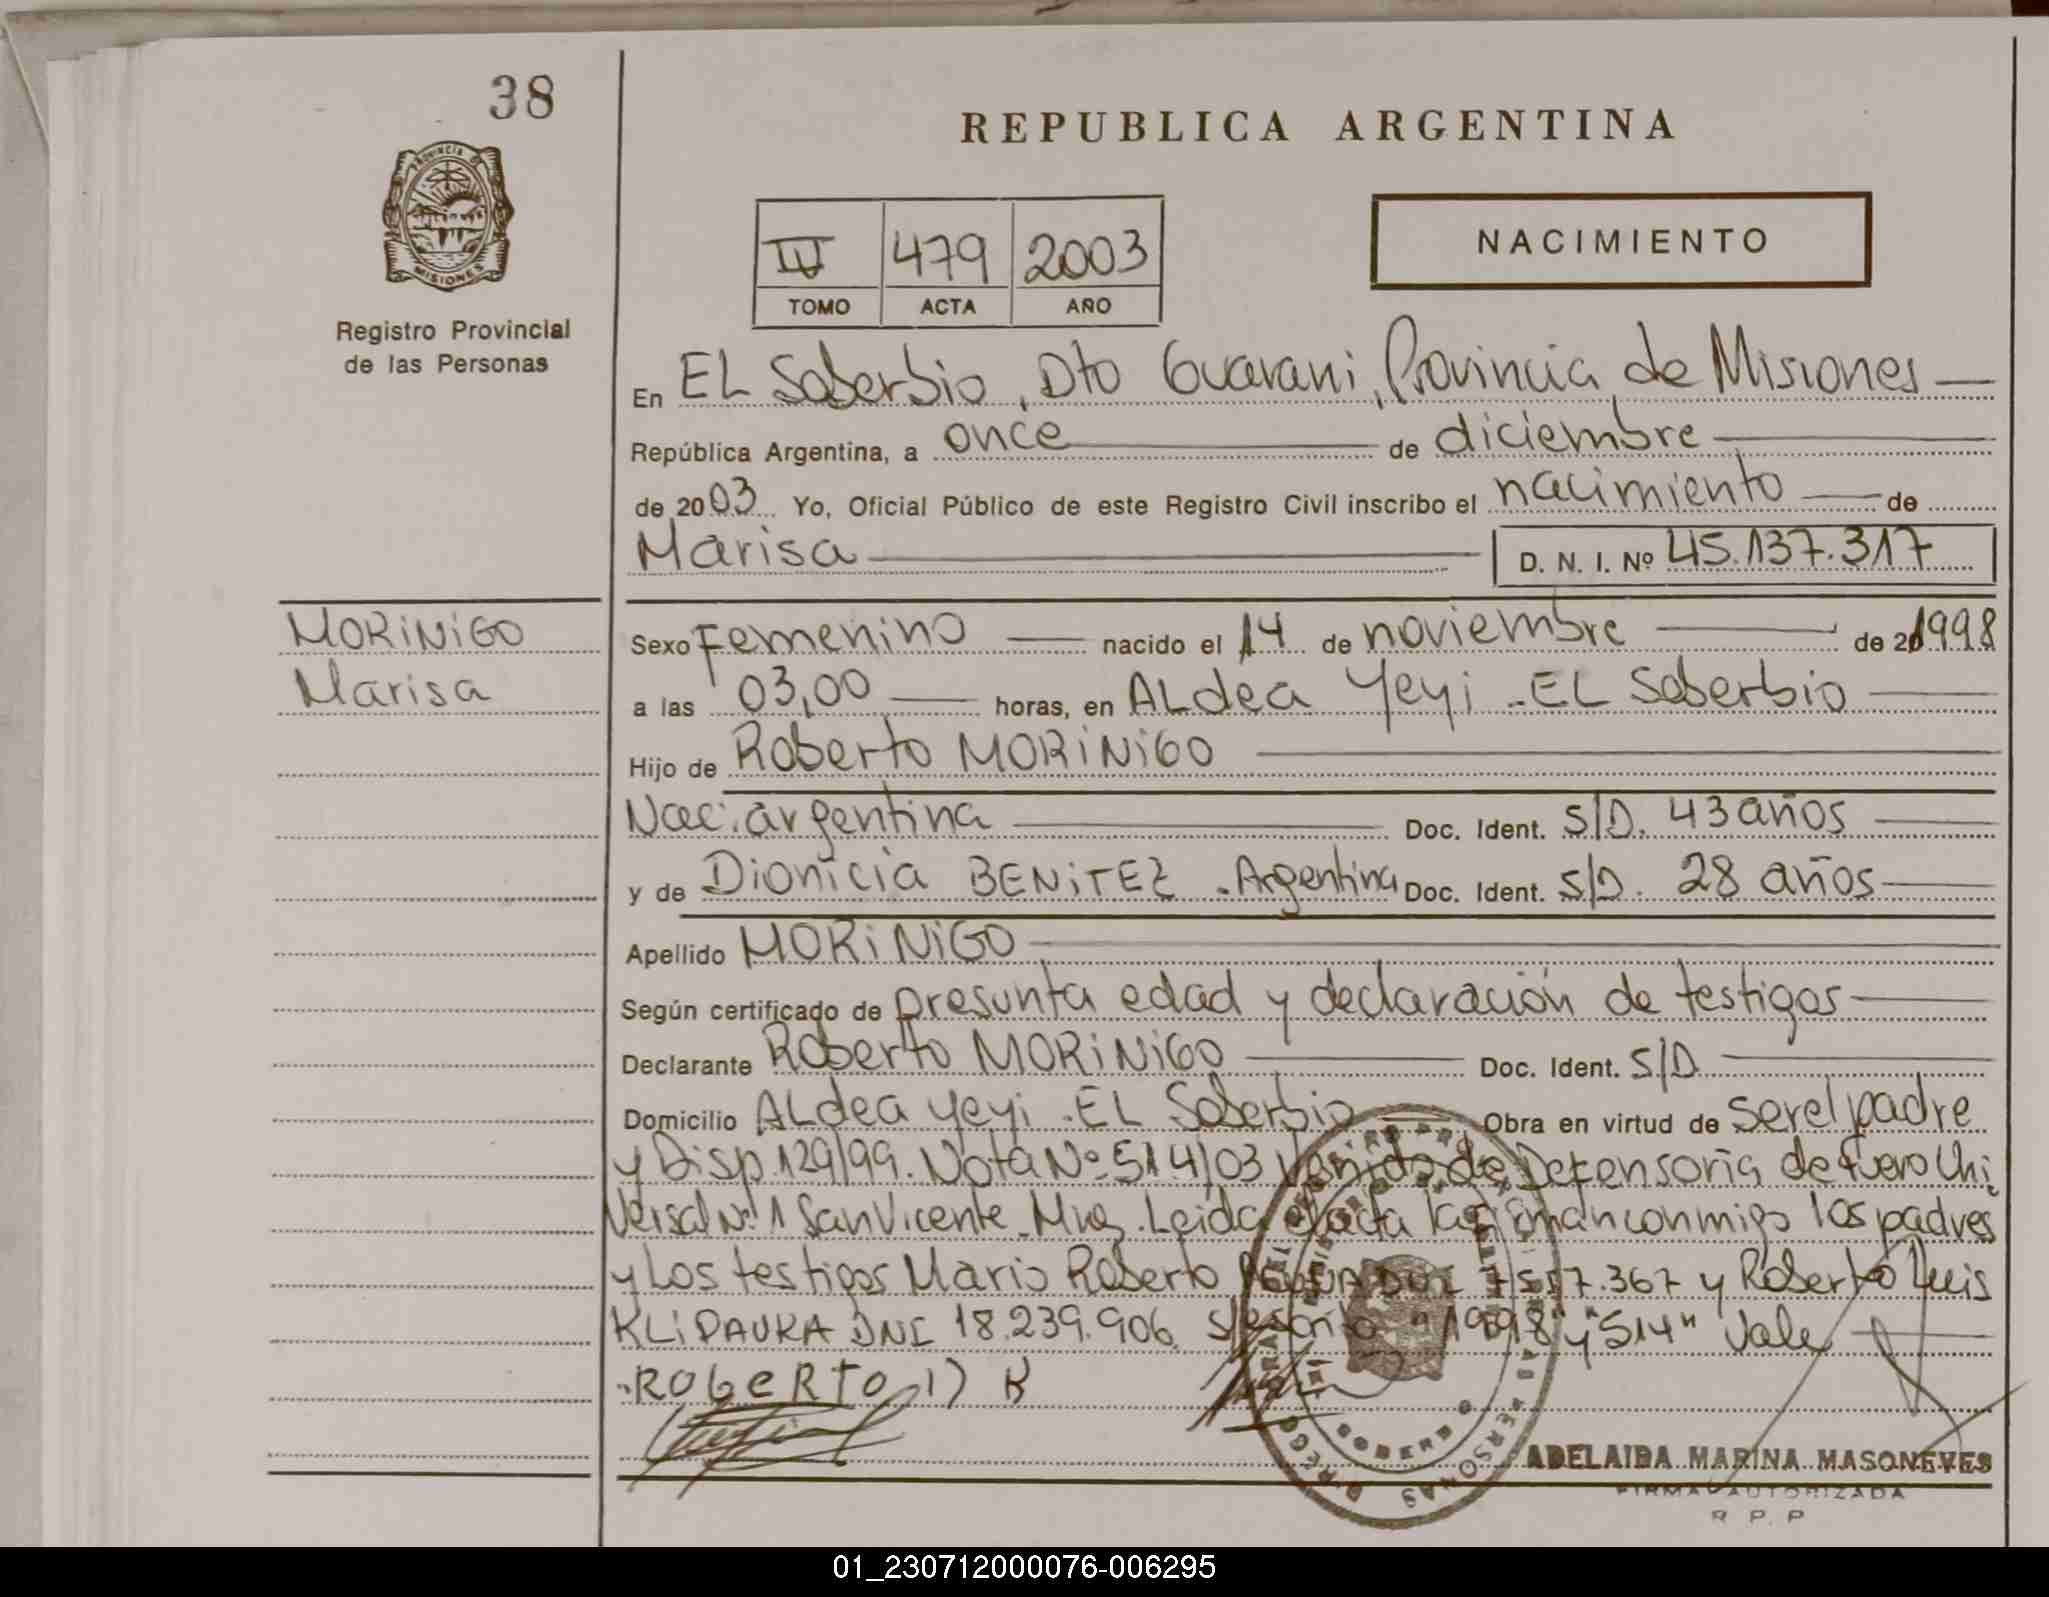 38
REPUBLICA ARGENTINA
PROVINCIA D MISIONES
Registro Provincial
de las Personas
IV 479 2003
TOMO ACTA AÑO
NACIMIENTO
En EL Soberbio, Dto Guarani, Provincia de Misiones
República Argentina, a once de diciembre
de 2003 Yo, Oficial Público de este Registro Civil inscribo el nacimiento de
Marisa D. N. I. Nº 45.137.317
MORiNiGO
Marisa
Sexo Femenino nacido el 14 de noviembre de 20 1998
a las 03,00 horas, en ALdea Yeyi - EL Soberbio
Hijo de Roberto MORiNiGO
Nac. argentina Doc. Ident. S/D. 43 años
y de Dionicia BENiTEZ - Argentina Doc. Ident. S/D. 28 años
Apellido MORiNiGO
Según certificado de presunta edad y declaración de testigos
Declarante Roberto MORiNiGO Doc. Ident. S/D
Domicilio ALdea Yeyi - EL Soberbio Obra en virtud de ser el padre
y Disp. 129/99. Nota Nº 514/03 Venida de Defensoria de Fuero Uni
Versal Nº 1 San Vicente - Mnes. Leida el acta la firman conmigo los padres
y Los testigos Mario Roberto DNI 7.557.367 y Roberto Luis
KLiPAUKA DNI 18.239.906 s/escrito "1998" y "514" Vale
ROBERTO
ADELAIDA MARINA MASONEVES
FIRMA AUTORIZADA
R. P. P
01_230712000076-006295